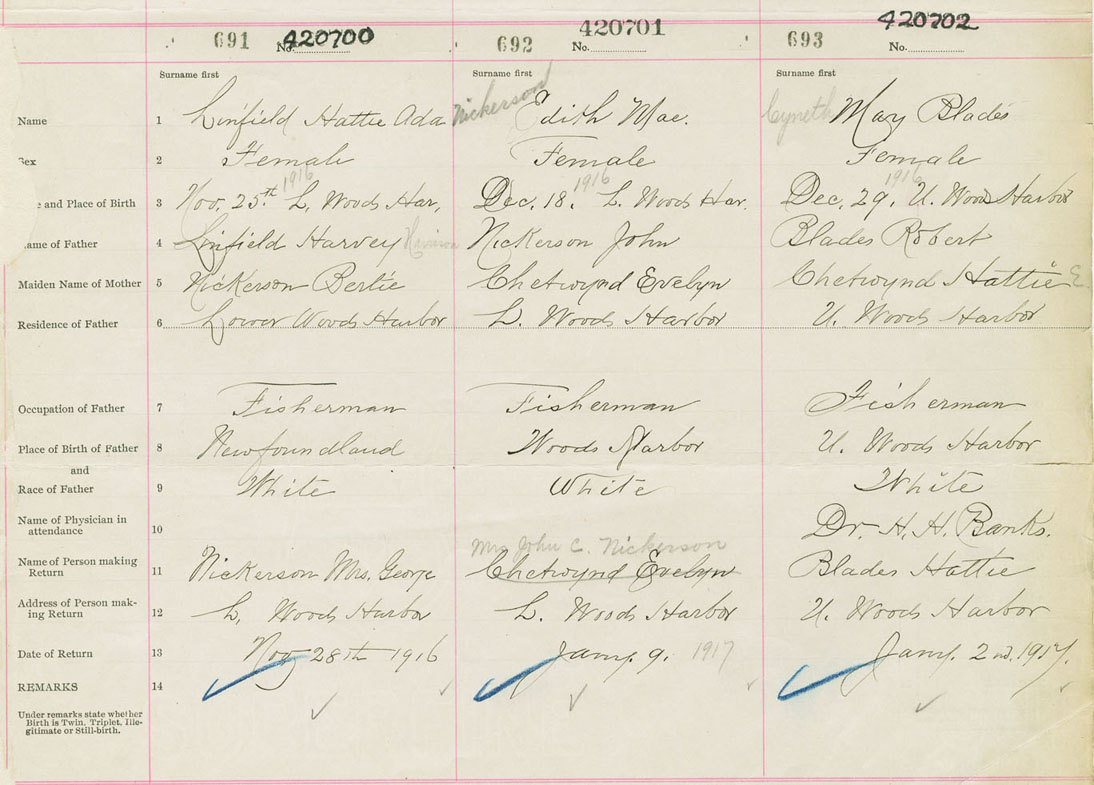 691 No. 420700 692 No. 420701 693 No. 420702
Surname first Surname first Surname first
Name 1 Linfield Hattie Ada Nickerson Edith Mae. Mary Blades
Sex 2 Female Female Female
1916 1916 1916
e and Place of Birth 3 Nov. 25th L. Woods Har, Dec. 18. L. Woods Har. Dec. 29, U. Woods Harbor
ame of Father 4 Linfield Harvey Nickerson John Blades Robert
Maiden Name of Mother 5 Nickerson Bertie Chetwynd Evelyn Chetwynd Hattie E.
Residence of Father 6 Lower Woods Harbor L. Woods Harbor U. Woods Harbor
Occupation of Father 7 Fisherman Fisherman Fisherman
Place of Birth of Father 8 Newfoundland Woods Harbor U. Woods Harbor
and
Race of Father 9 White White White
Name of Physician in
attendance 10 Dr. H. H. Banks.
Mrs John C. Nickerson
Name of Person making
Return 11 Nickerson Mrs. George Chetwynd Evelyn Blades Hattie
Address of Person mak-
ing Return 12 L. Woods Harbor L. Woods Harbor U. Woods Harbor
Date of Return 13 Nov 28th 1916 Jany. 9. 1917 Jany 2nd. 1917.
REMARKS 14
Under remarks state whether
Birth is Twin, Triplet, Ille-
gitimate or Still-birth.